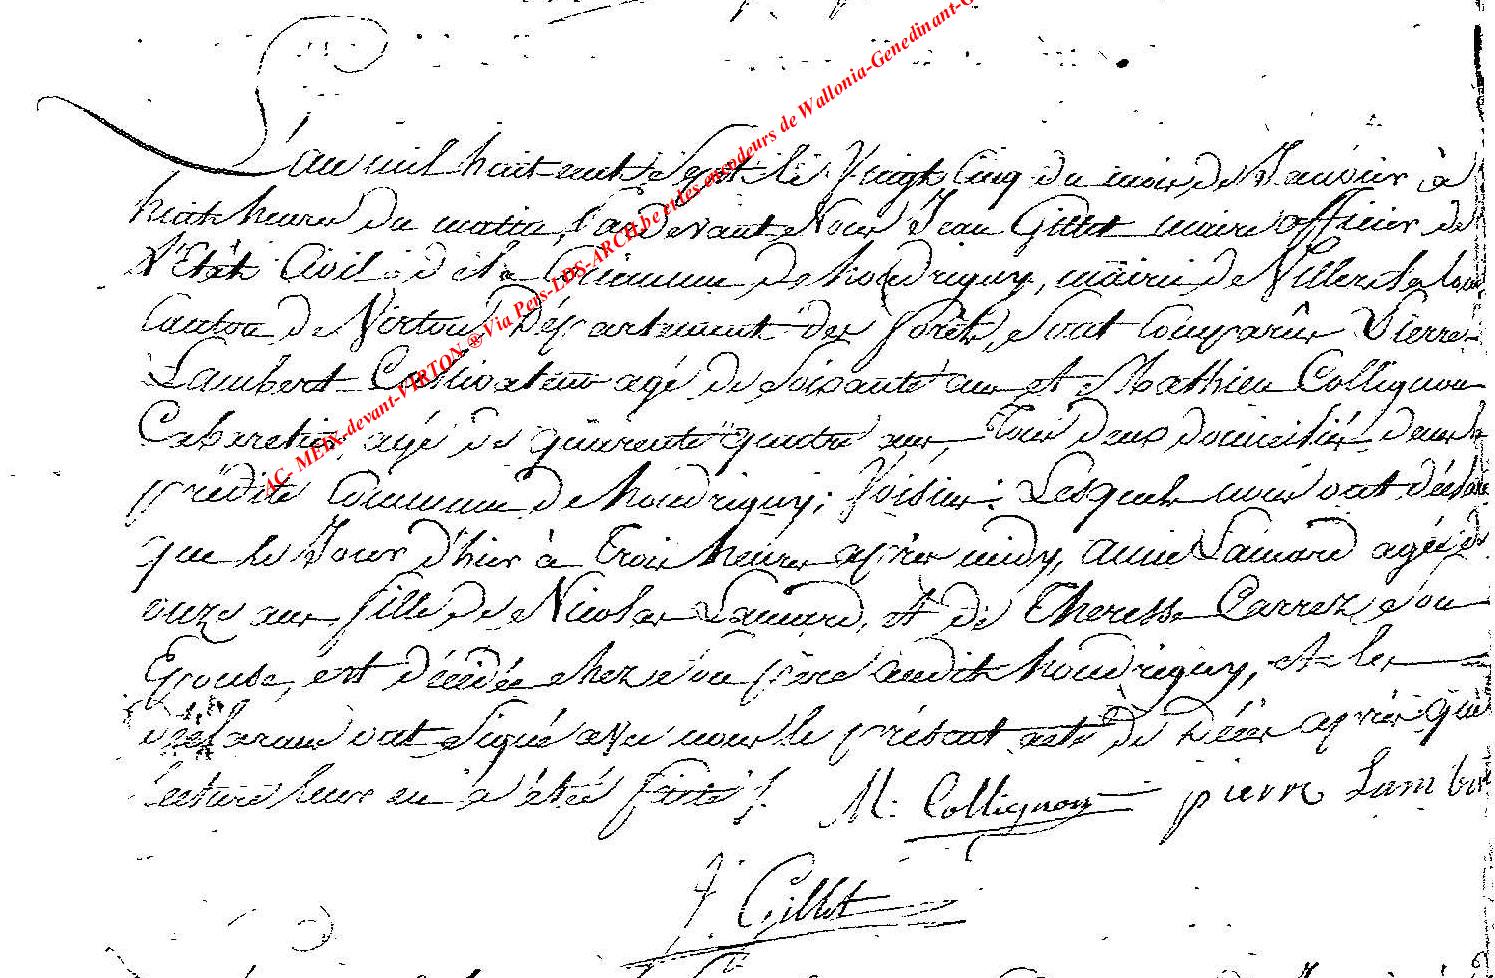 L'an mil huit cent Sept le Vingt Cinq du mois de Janvier à
huit heures du matin, Pardevant Nous Jean Gillet maire officier de
L'Etát Civil de la Commune de houdrigny, mairie de Villers la loue
Canton de Virton, Département des forêts, sont Comparûs Pierre
Lambert Cultivateur agé de Soixante ans et Mathieu Collignon
Cabaretier agé de quarente quatre ans, Tous deux domiciliés dans la
prédite Commune de houdrigny; Voisins: Lesquels nous ont déclaré
que le Jour d'hier à Trois heures après midy, anne Lamard agée de
onze ans, fille de Nicolas Lamard, et de Theresse Carrez son
Epouse, est décédée chez son père audit houdrigny, et les
déclarans ont signé avec nous le présent acte de Décès après que
lecture leur en a été faite ./.
M: Collignon pierre Lambert
J. Gillet
AC- MEIX-devant-VIRTON ® Via Pers-LDS-ARCH.be et les encodeurs de Wallonia-Genedinant-G